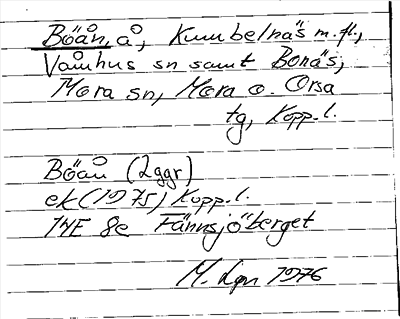 Böån, å, Kumbelnäs m.fl.,
Våmhus sn samt Bonäs,
Mora sn, Mora o. Orsa
tg, Kopp.l.
Böån (2ggr)
ek (1975) Kopp.l.
14E 8e Fännsjöberget
M. Lgn 1976